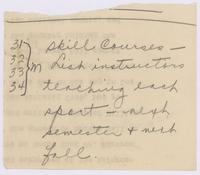 31 Skill Courses –
32
33 } M List instructors
34 teaching each
sport – next
semester & next
fall.